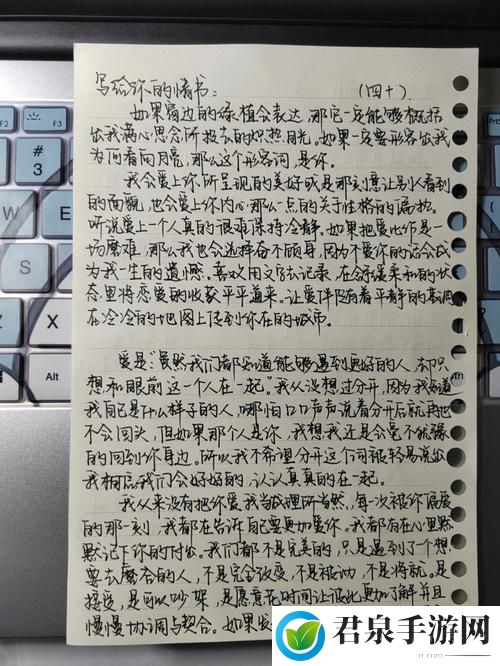 写给你的情书：（四十）
如果窗边的绿植会表达，那它一定能够概括
出我满心思念所投去的炽热目光。如果一定要形容出我
为何看向月亮，那么这个形容词，是你。
我会爱上你所呈现的美好或是那刻意让别人看到
的面貌，也会爱上你内心那么一点的关于性格的偏执。
听说爱上一个人真的很难保持冷静，如果把爱比作是一
场磨难，那么我也会选择奋不顾身，因为不爱你的话会成
为我一生的遗憾。喜欢用文字去记录，在舒缓柔和的状
态里将恋爱的收获平平道来。让爱伴随着平静的基调
在冷冷的地图上传到你在的城市。
爱是：“虽然我们都知道能够遇到更好的人，却只
想和眼前这一个人在一起。”我从没想过分开，因为我知道
我自己是什么样子的人，哪怕口口声声说着分开后就再也
不会回头，但如果那个人是你，我想我还是会毫不犹豫
的回到你身边。所以我不希望分开这个词被轻易说出
我相信我们会好好的，认认真真的在一起。
我从来没有把你爱我当成理所当然，每一次被你偏爱
的那一刻，我都在告诉自己要更加爱你。我都有在心里默
默记下你的付出。我们都不是完美的，只是遇到了个想
要去磨合的人，不是完全改变，不是被动，不是将就。是
接受，是可以吵架，是愿意花时间让彼此更加了解并且
慢慢协调与契合。如果
君泉手游网
F2
F3
#
3